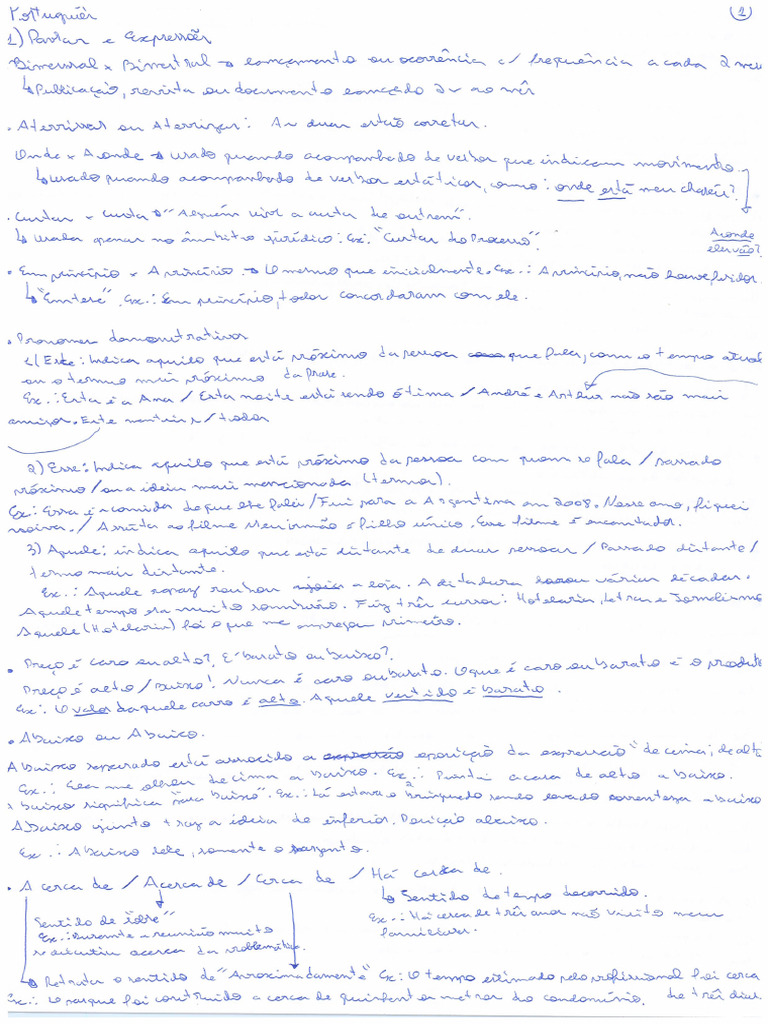 Português
1
1) Pautar e Expressões
Bimensal x Bimestral → lançamento ou ocorrência c/ frequência a cada 2 meses
↳ Publicação, revista ou documento lançado 2x ao mês
• Aterrissar ou Aterrizar: As duas estão corretas.
Onde x Aonde → usado quando acompanhado de verbos que indicam movimento.
↳ usado quando acompanhado de verbos estáticos, como: onde está meu chapéu?
Aonde eles vão?
• Custas x Custa → "Alguém vive a custa de outrem".
↳ usadas apenas no âmbito jurídico: Ex: "Custas do Processo".
• Em princípio x A princípio → O mesmo que inicialmente. Ex.: A princípio, não houve feridos
↳ "Em tese". Ex.: Em princípio, todos concordaram com ele.
• Pronomes demonstrativos
1) Este: Indica aquilo que está próximo da pessoa que fala, com o tempo atual
ou o termo mais próximo da frase.
Ex.: Esta é a Ana / Esta noite está sendo ótima / André e Arthur não são mais
amigos. Este mentiu p/ todos
2) Esse: Indica aquilo que está próximo da pessoa com quem se fala / passado
próximo / ou a ideia mais mencionada (termos).
Ex: Essa é a comida de que ele fala / Fui para a Argentina em 2008. Nesse ano, fiquei
noiva. / Assista ao filme Meu irmão é filho único. Esse filme é encantador.
3) Aquele: indica aquilo que está distante de duas pessoas / Passado distante /
termo mais distante.
Ex.: Aquele rapaz roubou a loja. A ditadura durou várias décadas.
Aquele tempo era muito sombrio. Fiz três cursos: Hotelaria, Letras e Jornalismo
Aquele (Hotelaria) foi o que me empregou primeiro.
• Preço é caro ou alto? É barato ou baixo?
Preço é alto / baixo! Nunca é caro ou barato. O que é caro ou barato é o produto
Ex: O valor daquele carro é alto. Aquele vestido é barato.
• Abaixo ou A baixo.
A baixo separado está associado a oposição da expressão "de cima; de alto
Ex.: Ela me olhou de cima a baixo. Ex.: Pintei a casa de alto a baixo.
A baixo significa "para baixo". Ex.: Lá estava o brinquedo sendo levado correnteza a baixo
Abaixo junto traz a ideia de inferior. Posição abaixo.
Ex.: Abaixo dele, somente o sargento.
• A cerca de / Acerca de / Cerca de / Há cerca de.
↳ Sentido de tempo decorrido.
Ex.: Há cerca de três anos não visito meus
familiares.
Sentido de "sobre"
Ex.: Durante a reunião muito
se discutiu acerca da problemática.
↳ Retrata o sentido de "Aproximadamente" Ex: O tempo estimado pelo profissional foi cerca
de três dias
Ex.: O parque foi construído a cerca de quinhentos metros do condomínio.